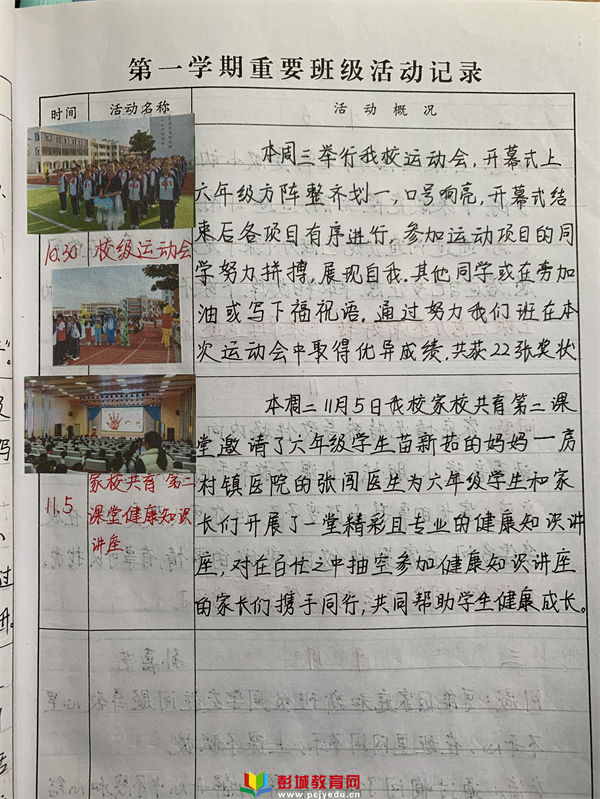 第一学期重要班级活动记录
时间 活动名称 活动概况
10.30 校级运动会
本周三举行我校运动会，开幕式上
六年级方阵整齐划一，口号响亮，开幕式结
束后各项目有序进行，参加运动项目的同
学努力拼搏，展现自我。其他同学或在旁加
油或写下福祝语。通过努力我们班在本
次运动会中取得优异成绩，共获22张奖状
11.5
家校共育第二
课堂健康知识
讲座
本周二11月5日我校家校共育第二课
堂邀请了六年级学生苗新茹的妈妈一房
村镇医院的张闯医生为六年级学生和家
长们开展了一堂精彩且专业的健康知识讲
座，对在百忙之中抽空参加健康知识讲座
的家长们携手同行，共同帮助学生健康成长。
彭城教育网
www.pcjyedu.cn